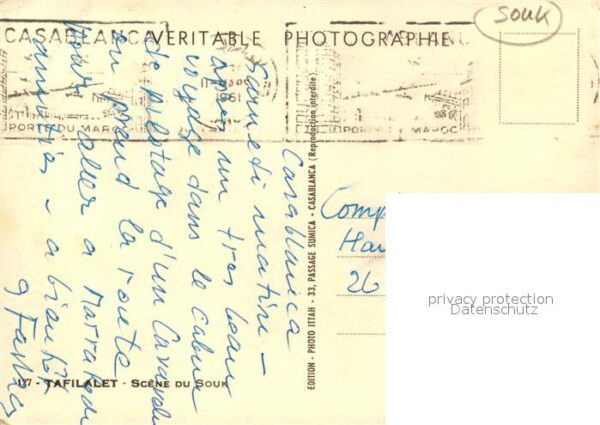 Souk
CASABLANCA VERITABLE PHOTOGRAPHIE
1961
PORTE DU MAROC
Casablanca
Samedi matin -
après un tres beau
voyage dans la cabine
de pilotage d'un Caravelle
on prend la route
pour aller a Marrakech
amitiés - a bientôt
EDITION - PHOTO ITTAH - 33, PASSAGE SUMICA - CASABLANCA (Reproduction interdite)
Comp
Hau
26
privacy protection
Datenschutz
137 - TAFILALET - SCÈNE DU SOUK